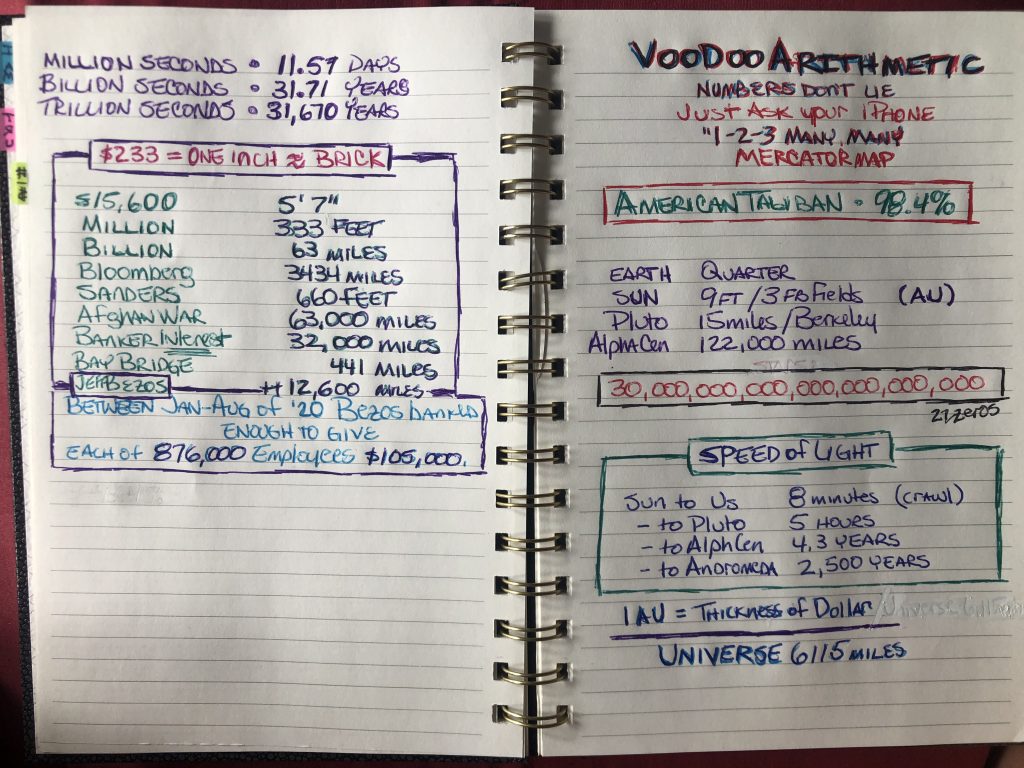 MILLION SECONDS • 11.57 DAYS
BILLION SECONDS • 31.71 YEARS
TRILLION SECONDS • 31,670 YEARS
$233 = ONE INCH ≈ BRICK
$15,600 5' 7"
MILLION 333 FEET
BILLION 63 MILES
Bloomberg 3434 MILES
SANDERS 660 FEET
AFGHAN WAR 63,000 MILES
BANKER Interest 32,000 MILES
BAY BRIDGE 441 MILES
JEFF BEZOS 12,600 MILES
BETWEEN JAN-AUG of '20 BEZOS BANKED
ENOUGH TO GIVE
EACH OF 876,000 Employees $105,000.
VOODOO ARITHMETIC
NUMBERS DONT LIE
JUST ASK your iPHONE
"1-2-3 MANY, MANY
MERCATOR MAP
AMERICAN TALIBAN • 98.4%
EARTH QUARTER
SUN 9FT / 3 FB Fields (AU)
Pluto 15 miles / Berkeley
Alpha Cen 122,000 MILES
30,000,000,000,000,000,000,000
21 zeros
SPEED of LIGHT
Sun to Us 8 minutes (CRAWL)
- to Pluto 5 HOURS
- to AlphCen 4.3 YEARS
- to ANDROMEDA 2,500 YEARS
1 AU = THICKNESS of DOLLAR
UNIVERSE 6115 MILES